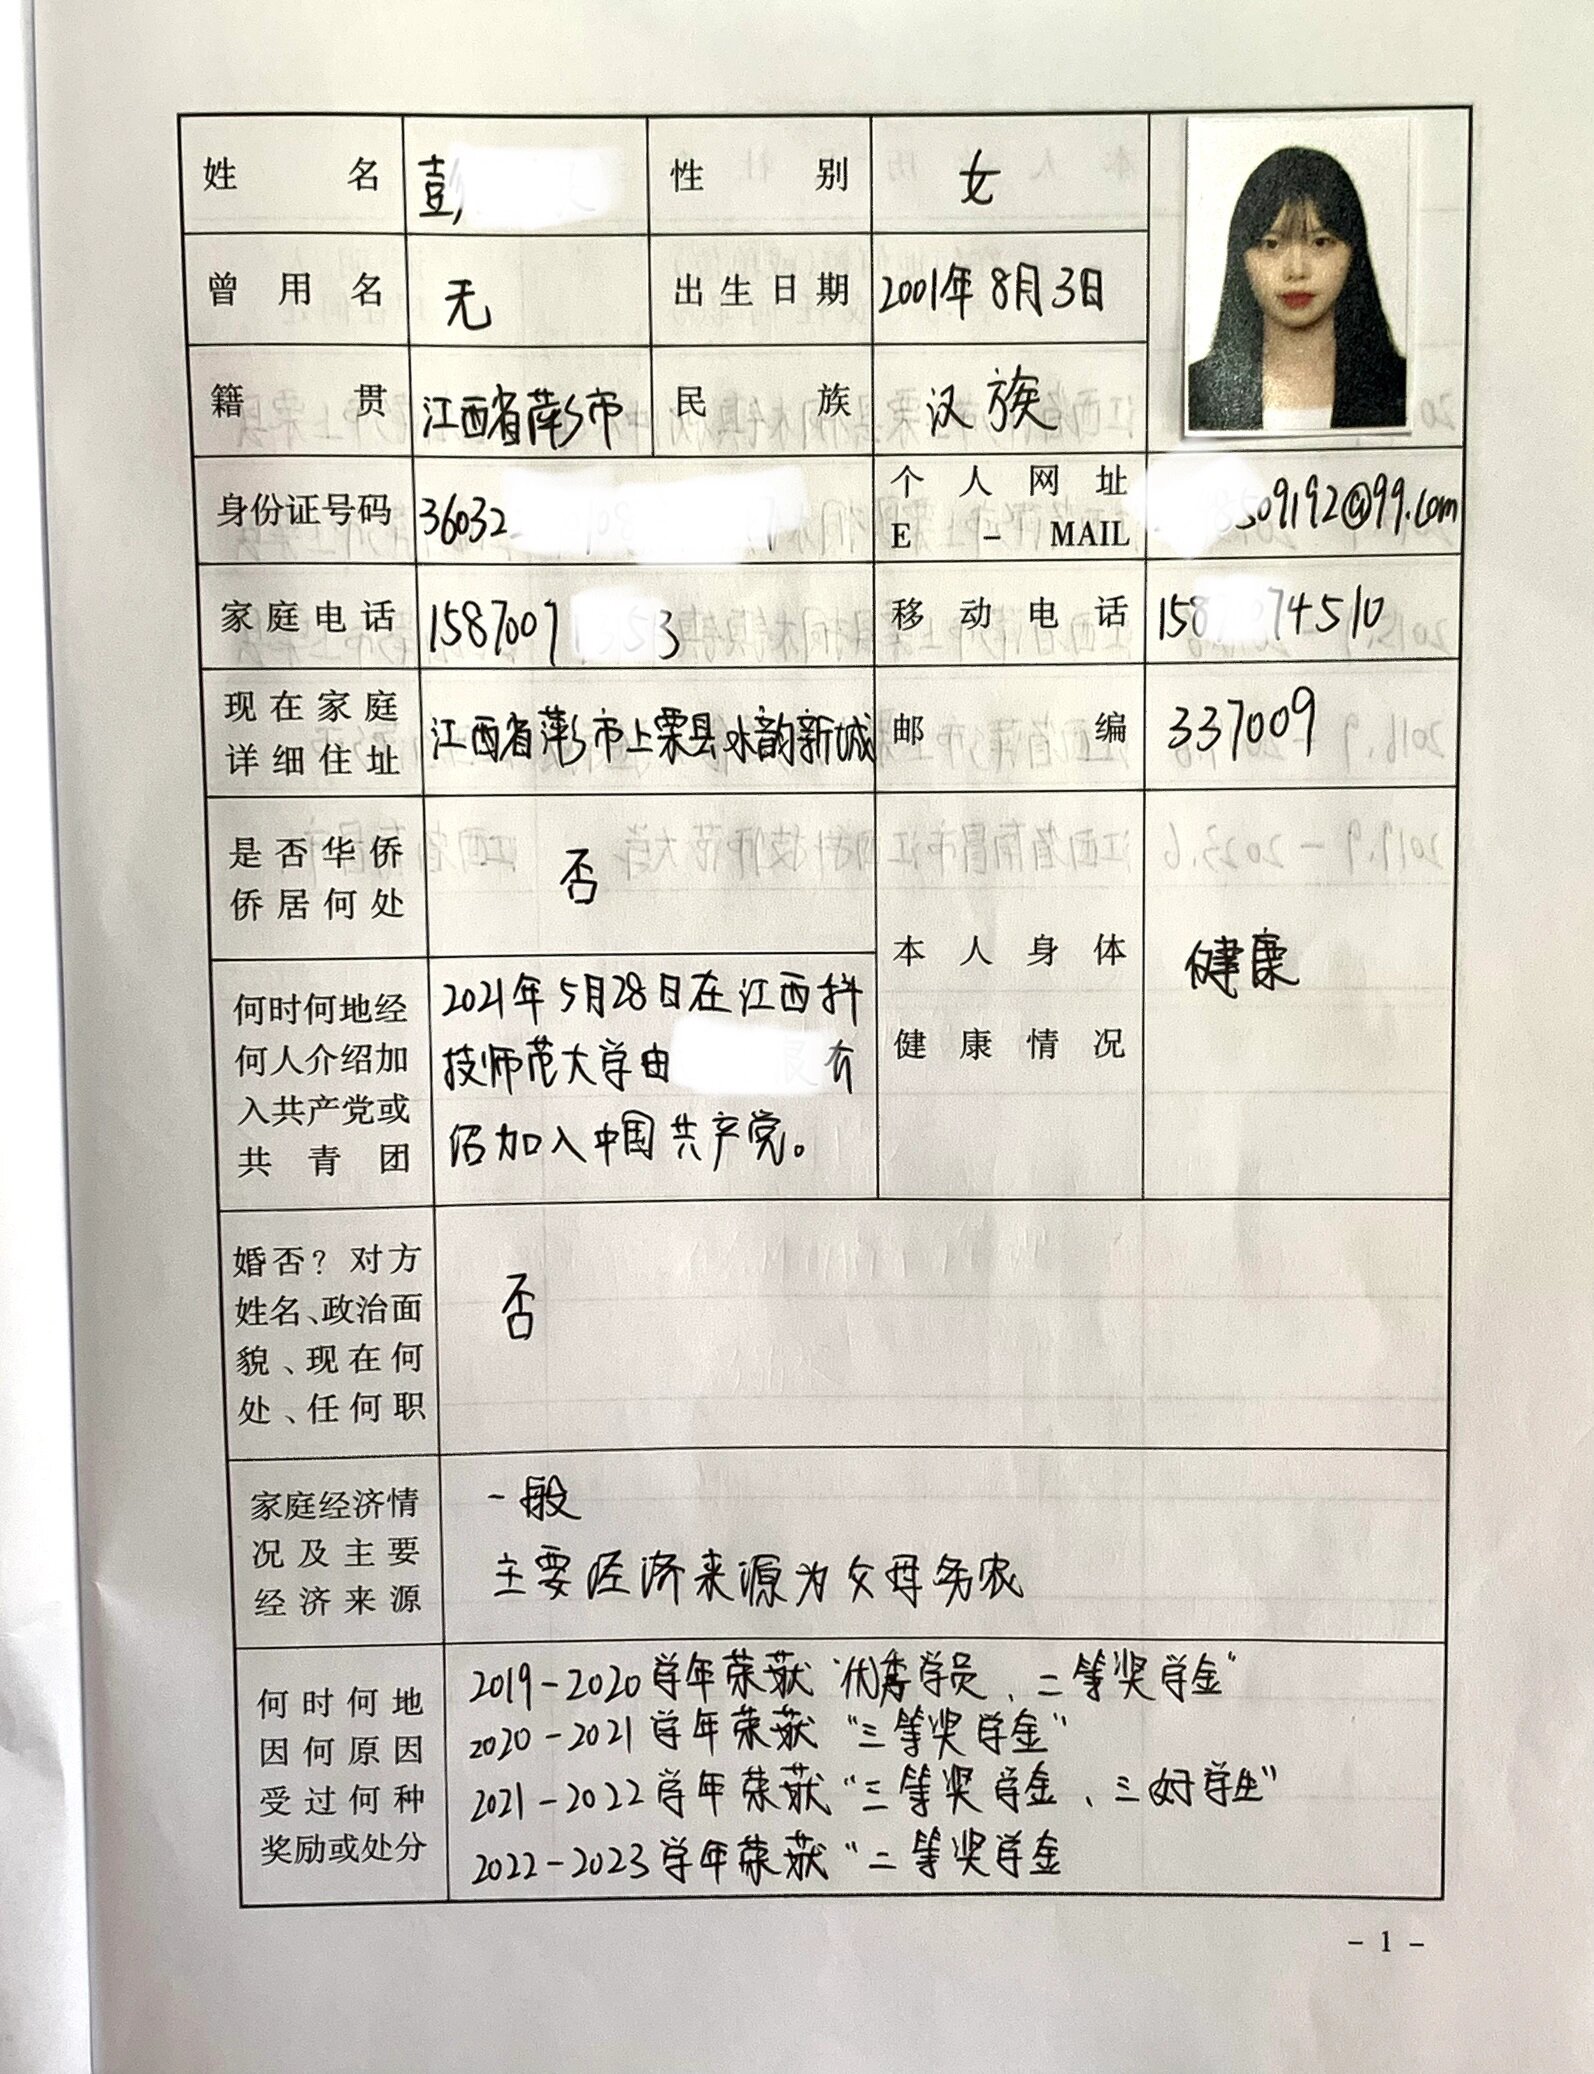 姓名 彭 性别 女
曾用名 无 出生日期 2001年8月3日
籍贯 江西省萍乡市 民族 汉族
身份证号码 36032 个人网址 E-MAIL 8509192@qq.com
家庭电话 1587007 3 移动电话 158 74510
现在家庭
详细住址 江西省萍乡市上栗县水韵新城 邮编 337009
是否华侨
侨居何处 否
本人身体
健康情况 健康
何时何地经
何人介绍加
入共产党或
共青团
2021年5月28日在江西科
技师范大学由 介
绍加入中国共产党。
婚否?对方
姓名、政治面
貌、现在何
处、任何职
否
家庭经济情
况及主要
经济来源
一般
主要经济来源为父母务农
何时何地
因何原因
受过何种
奖励或处分
2019-2020学年荣获“优秀学员、二等奖学金”
2020-2021学年荣获“三等奖学金”
2021-2022学年荣获“三等奖学金、三好学生”
2022-2023学年荣获“二等奖学金
- 1 -